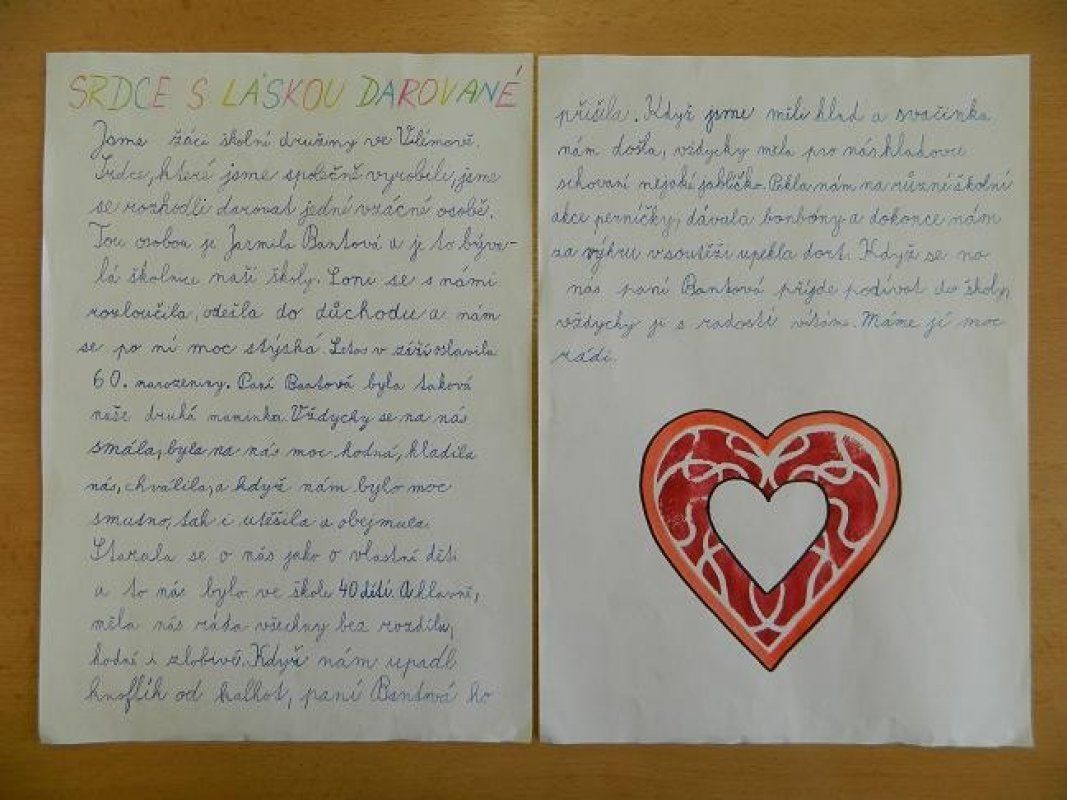 SRDCE S LÁSKOU DAROVANÉ
Jsme žáci školní družiny ve Vilémově.
Srdce, které jsme společně vyrobili, jsme
se rozhodli darovat jedné vzácné osobě.
Tou osobou je Jarmila Bantová a je to býva-
lá školnice naší školy. Loni se s námi
rozloučila, odešla do důchodu a nám
se po ní moc stýská. Letos v září oslavila
60. narozeniny. Paní Bantová byla taková
naše druhá maminka. Vždycky se na nás
smála, byla na nás moc hodná, hladila
nás, chválila, a když nám bylo moc
smutno, tak i utěšila a obejmula.
Starala se o nás jako o vlastní děti
a to nás bylo ve škole 40 dětí. A hlavně,
měla nás ráda všechny bez rozdílu,
hodné i zlobivé. Když nám upadl
knoflík od kalhot, paní Bantová ho
přišila. Když jsme měli hlad a svačinka
nám došla, vždycky měla pro nás hladovce
schovaní nějaké jablíčko. Pekla nám na různé školní
akce perníčky, dávala bonbóny a dokonce nám
za výhru v soutěži upekla dort. Když se na
nás paní Bantová přijde podívat do školy,
vždycky ji s radostí vítáme. Máme jí moc
rádi.